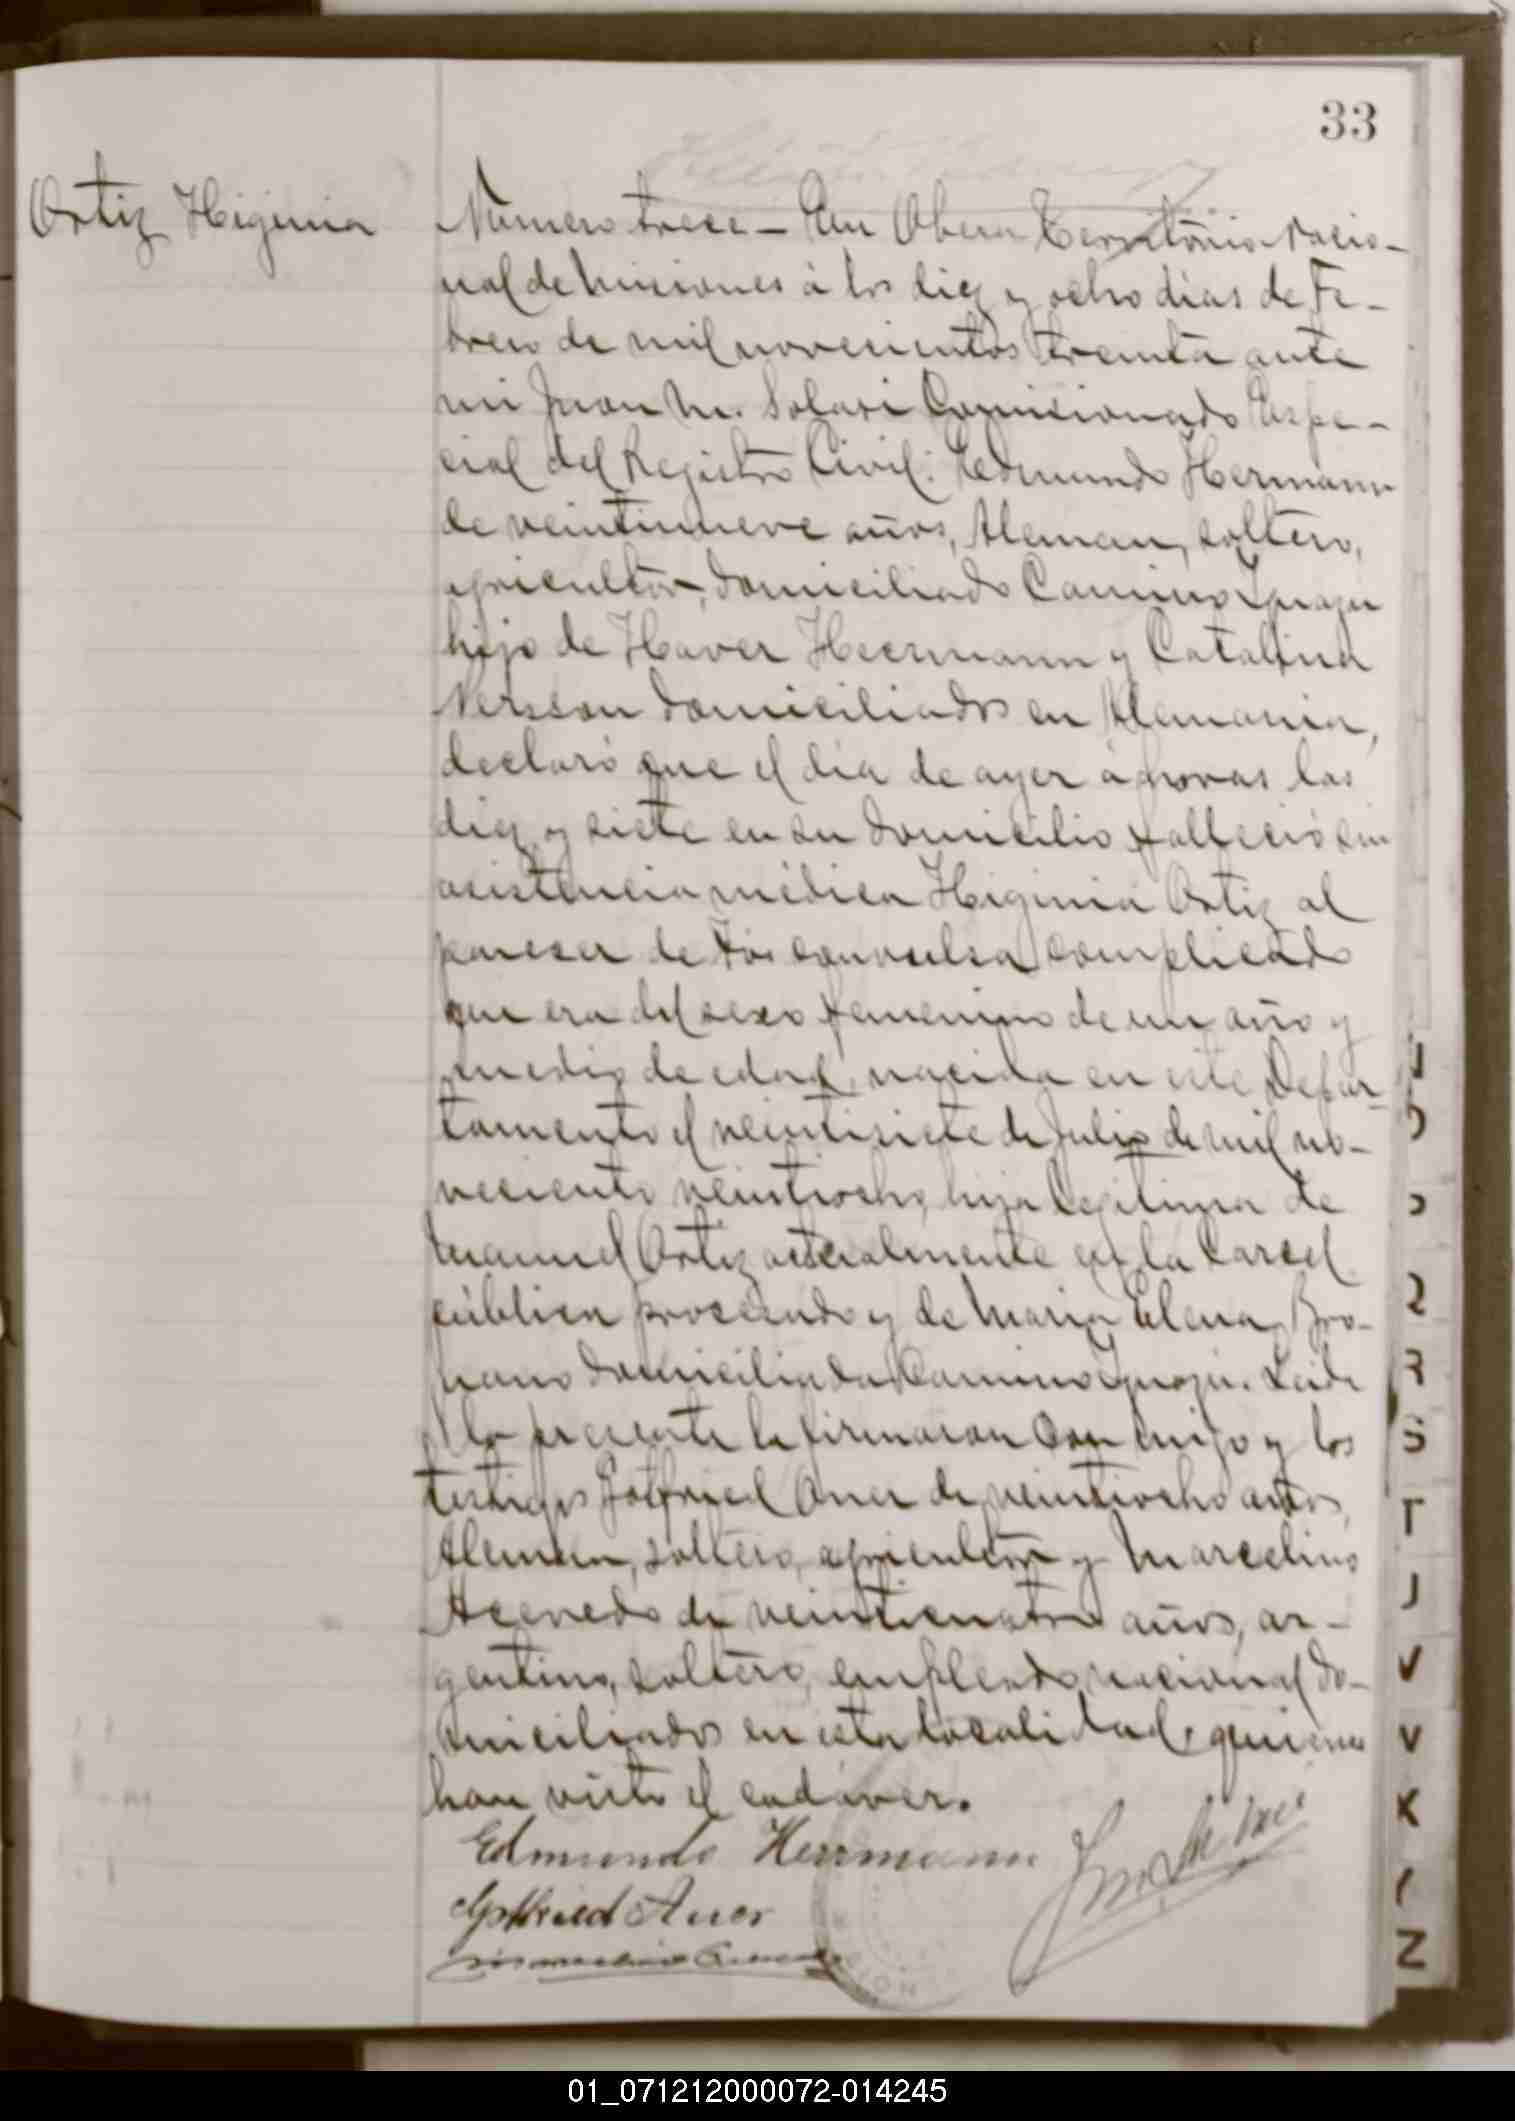 33
Ortiz Higinia
Número trece – En Obera Territorio Nacio-
nal de Misiones á los diez y ocho días de Fe-
brero de mil novecientos treinta ante
mi Juan M. Solari Comisionado Espe-
cial del Registro Civil: Edmundo Hermann
de veintinueve años, Aleman, soltero,
agricultor, domiciliado Camino Yguazu
hijo de Haver Heermann y Catalina
domiciliados en Alemania,
declaró que el día de ayer á horas las
diez y siete en su domicilio falleció sin
asistencia médica Higinia Ortiz al
parecer de tos convulsa complicado
que era del sexo femenino de un año y
medio de edad, nacida en este Depar-
tamento el veintisiete de Julio de mil no-
veciento veintiocho, hija legitima de
Manuel Ortiz actualmente en la Carcel
pública procesado y de Maria Elena
domiciliada Camino Yguazu. Leida
la presente la firmaron con migo y los
testigos Gotfried Auer de veintiocho años,
Aleman, soltero, agricultor y Marcelino
Acevedo de veinticuatro años, ar-
gentino, soltero, empleado nacional do-
miciliados en esta localidad, quienes
han visto el cadáver.
Edmundo Herrmann
Gottfried Auer
Q
R
S
T
J
V
V
X
Z
01_071212000072-014245